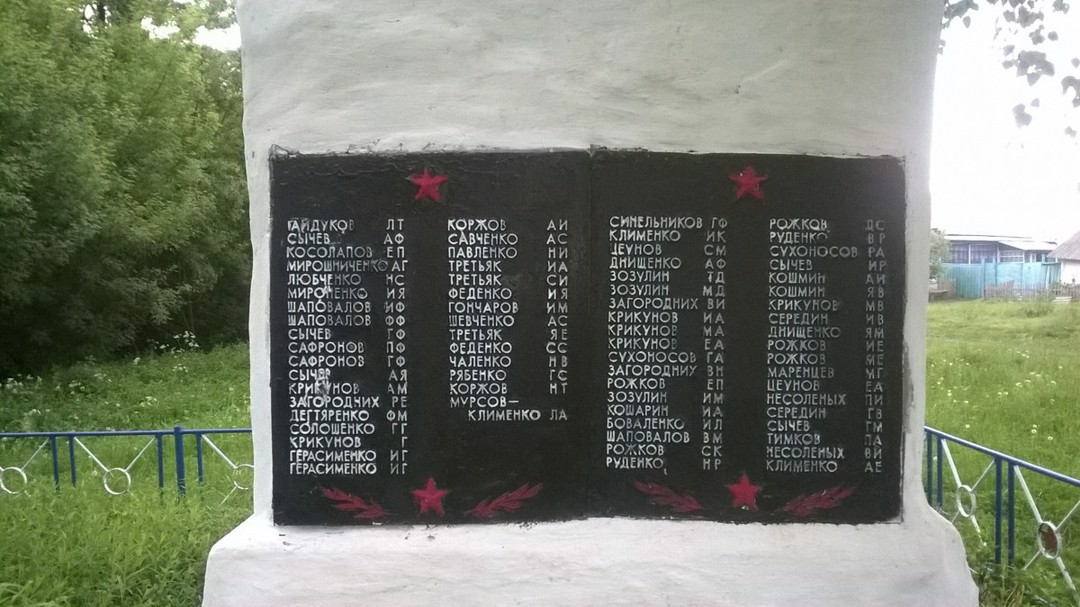 ГАЙДУКОВ ЛТ
СЫЧЕВ АФ
КОСОЛАПОВ ЕП
МИРОШНИЧЕНКО АГ
ЛЮБЧЕНКО НС
МИРОНЕНКО ИЯ
ШАПОВАЛОВ ИФ
ШАПОВАЛОВ ФФ
СЫЧЕВ ТФ
САФРОНОВ ПФ
САФРОНОВ ГФ
СЫЧЕВ АЯ
КРИКУНОВ АМ
ЗАГОРОДНИХ РЕ
ДЕГТЯРЕНКО ФМ
СОЛОШЕНКО ГГ
КРИКУНОВ Г
ГЕРАСИМЕНКО ИГ
ГЕРАСИМЕНКО ИГ
КОРЖОВ АИ
САВЧЕНКО АС
ПАВЛЕНКО НИ
ТРЕТЬЯК ИА
ТРЕТЬЯК СИ
ФЕДЕНКО ИЯ
ГОНЧАРОВ ИМ
ШЕВЧЕНКО АС
ТРЕТЬЯК ЯЕ
ФЕДЕНКО СС
ЧАЛЕНКО НВ
РЯБЕНКО ГС
КОРЖОВ НТ
МУРСОВ–
КЛИМЕНКО ЛА
СИНЕЛЬНИКОВ ГФ
КЛИМЕНКО ИК
ЦЕУНОВ СМ
ДНИЩЕНКО АФ
ЗОЗУЛИН ТД
ЗОЗУЛИН МД
ЗАГОРОДНИХ ВИ
КРИКУНОВ ИА
КРИКУНОВ МА
КРИКУНОВ ЕА
СУХОНОСОВ ГА
ЗАГОРОДНИУ ВН
РОЖКОВ ЕП
ЗОЗУЛИН ИМ
КОШАРИН ИА
БОВАЛЕНКО ИЛ
ШАПОВАЛОВ ЗМ
РОЖКОВ СК
РУДЕНКО НР
РОЖКОВ ДС
РУДЕНКО ВР
СУХОНОСОВ РА
СЫЧЕВ ИР
КОШМИН АИ
КОШМИН ЯВ
КРИКУНОВ МВ
СЕРЕДИН ИВ
ДНИЩЕНКО ЯМ
РОЖКОВ ИЕ
РОЖКОВ МЕ
МАРЕНЦЕВ МГ
ЦЕУНОВ ЕА
НЕСОЛЕНЫХ ПИ
СЕРЕДИН ГВ
СЫЧЕВ ГМ
ТИМКОВ ПА
НЕСОЛЕНЫХ ВИ
КЛИМЕНКО АЕ